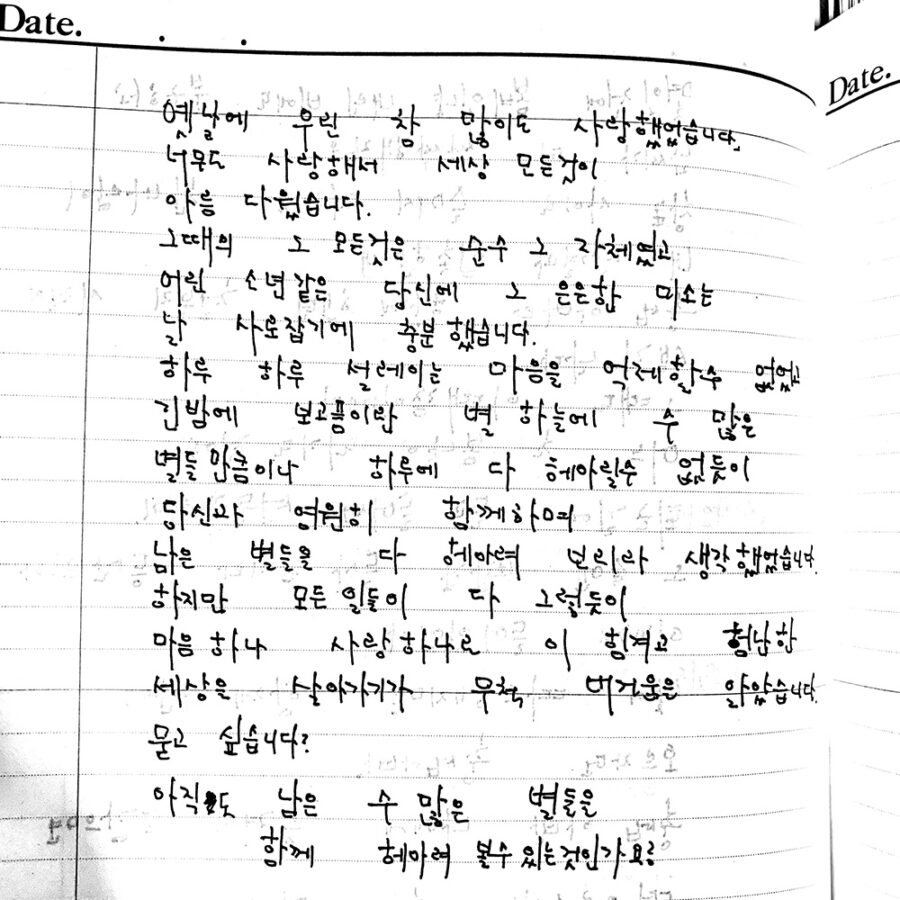 Date.
Date.
옛날에 우린 참 많이도 사랑했었습니다.
너무도 사랑해서 세상 모든것이
아름 다웠습니다.
그때의 그 모든것은 순수 그 자체였고
어린 소년같은 당신에 그 은은한 미소는
날 사로잡기에 충분했습니다.
하루 하루 설레이는 마음을 억제할수 없었고
긴밤에 보고픔이란 별 하늘에 수 많은
별들만큼이나 하루에 다 헤아릴수 없듯이
당신과 영원히 함께하며
남은 별들을 다 헤아려 보리라 생각했었습니다.
하지만 모든일들이 다 그렇듯이
마음하나 사랑하나로 이 힘겨고 험난한
세상은 살아가기가 무척 버거움은 알았습니다.
묻고 싶습니다?
아직도 남은 수 많은 별들을
함께 헤아려 볼수있는것인가요?